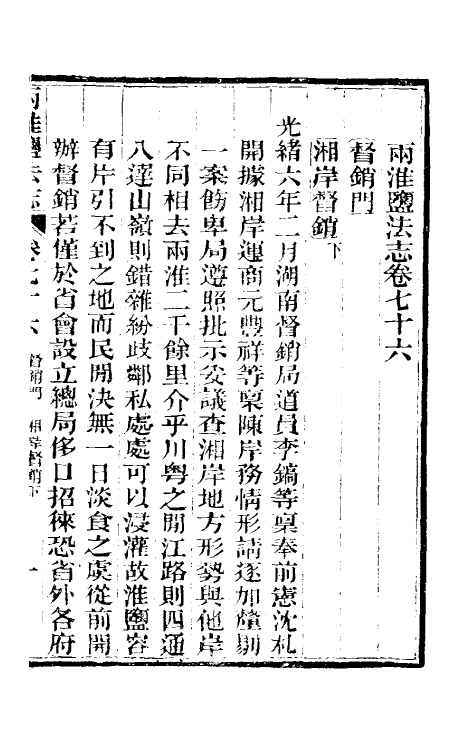 兩淮鹽法志卷七十六
督銷門
湘岸督銷下
光緒六年二月湖南督銷局道員李鎬等稟奉前憲沈札
開據湘岸運商元豐祥等稟陳岸務情形請逐加釐剔
一案飭卑局遵照批示妥議查湘岸地方形勢與他岸
不同相去兩淮二千餘里介乎川粵之間江路則四通
八達山嶺則錯雜紛歧鄰私處處可以浸灌故淮鹽容
有片引不到之地而民間決無一日淡食之虞從前開
辦督銷若僅於省會設立總局侈口招徠恐省外各府
兩淮鹽法志 卷七十六 督銷門 湘岸督銷下 一